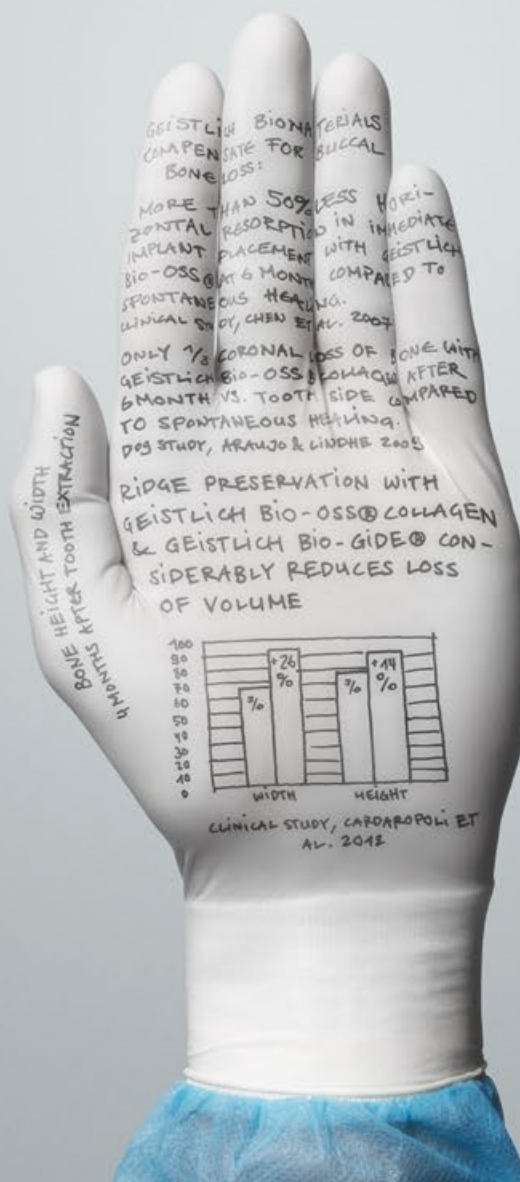 GEISTLICH BIOMATERIALS
COMPENSATE FOR BUCCAL
BONE LOSS:
MORE THAN 50% LESS HORI-
ZONTAL RESORPTION IN IMMEDIATE
IMPLANT PLACEMENT WITH GEISTLICH
BIO-OSS® AT 6 MONTH COMPARED TO
SPONTANEOUS HEALING.
CLINICAL STUDY, CHEN ET AL. 2007
ONLY 1/3 CORONAL LOSS OF BONE WITH
GEISTLICH BIO-OSS® COLLAGEN AFTER
6 MONTH VS. TOOTH SIDE COMPARED
TO SPONTANEOUS HEALING.
DOG STUDY, ARAUJO & LINDHE 2009
RIDGE PRESERVATION WITH
GEISTLICH BIO-OSS® COLLAGEN
& GEISTLICH BIO-GIDE® CON-
SIDERABLY REDUCES LOSS
OF VOLUME
BONE HEIGHT AND WIDTH
4 MONTHS AFTER TOOTH EXTRACTION
100
90
80
70
60
50
40
30
20
10
0
%
+26
%
%
+14
%
WIDTH HEIGHT
CLINICAL STUDY, CARDAROPOLI ET
AL. 2012